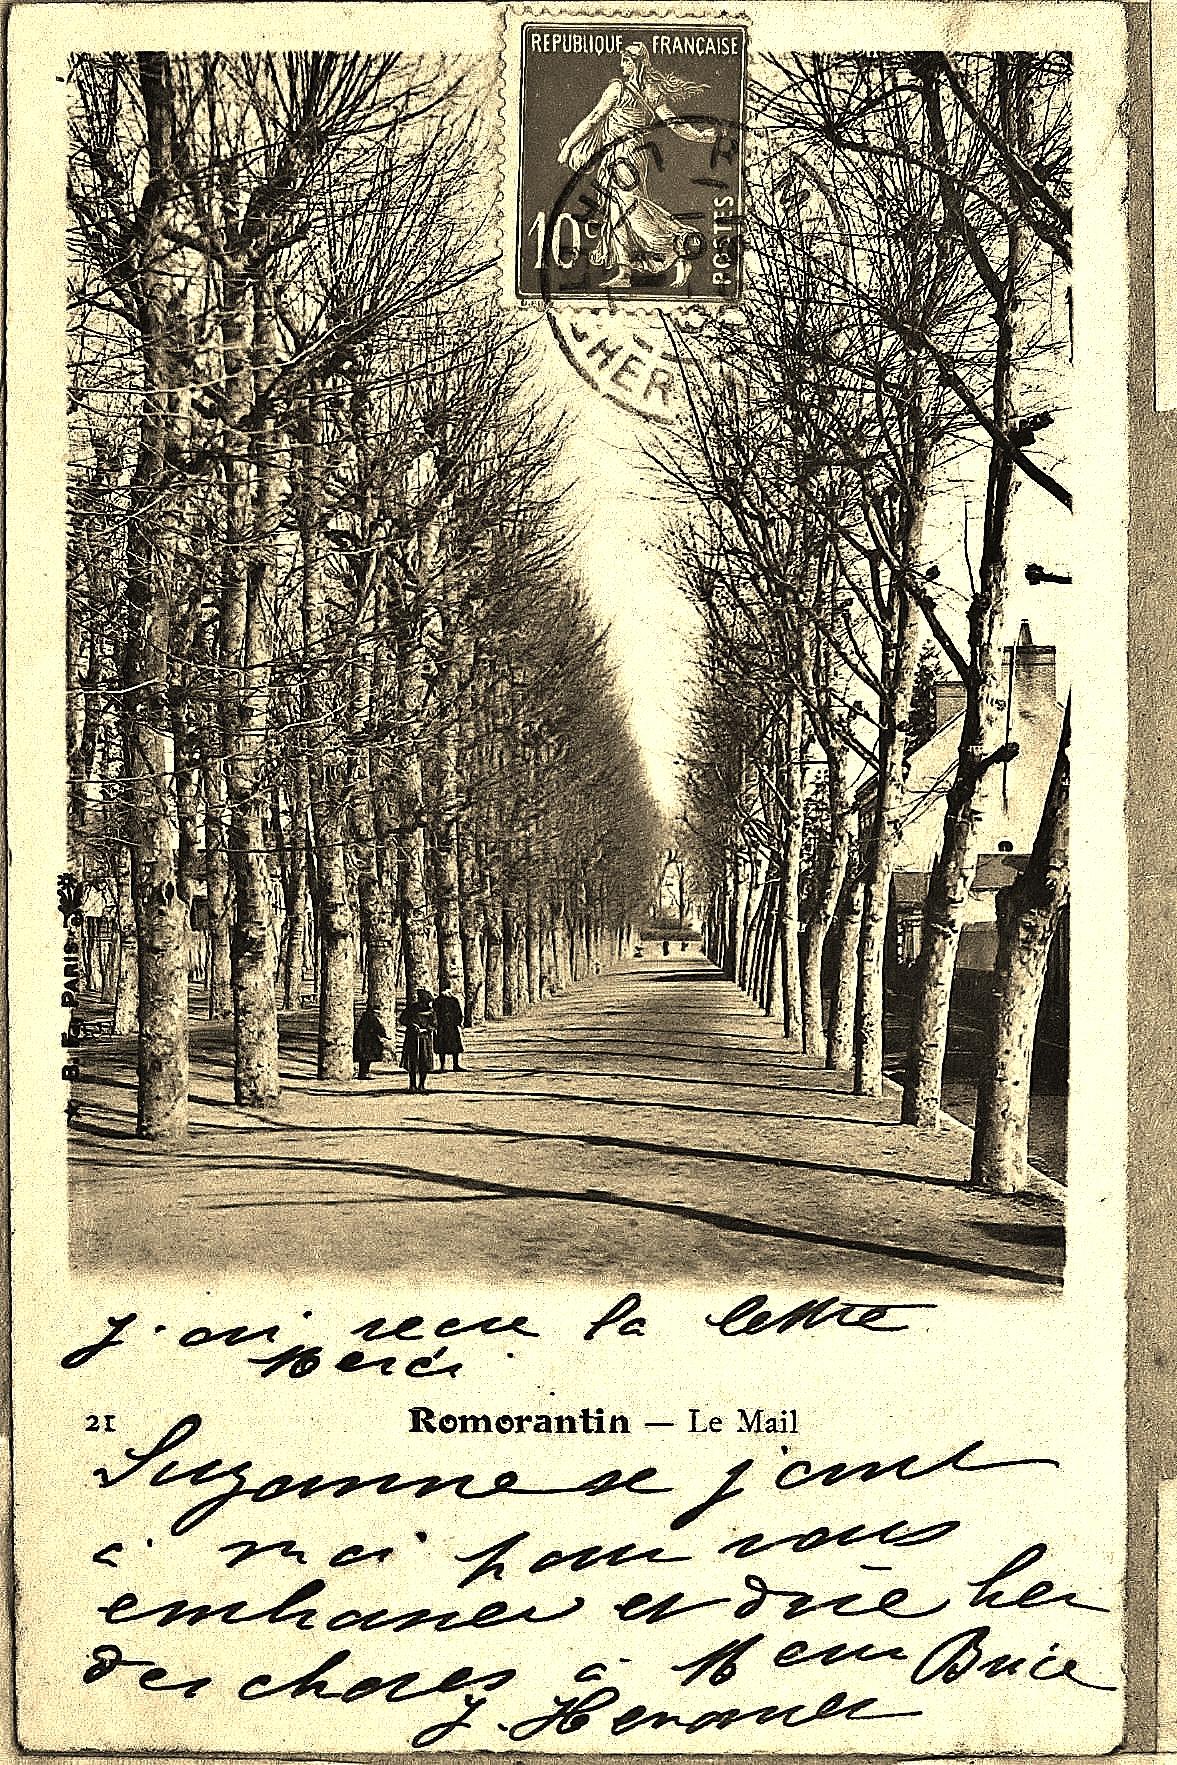 REPUBLIQUE FRANÇAISE
10c
POSTES
LOIR
CHER
B. F. PARIS
j'ai recu la lettre
Merci
21 Romorantin — Le Mail
Suzanne se joint
à moi pour vous
embrasser et dire bien
des choses à Mme Brice
J.